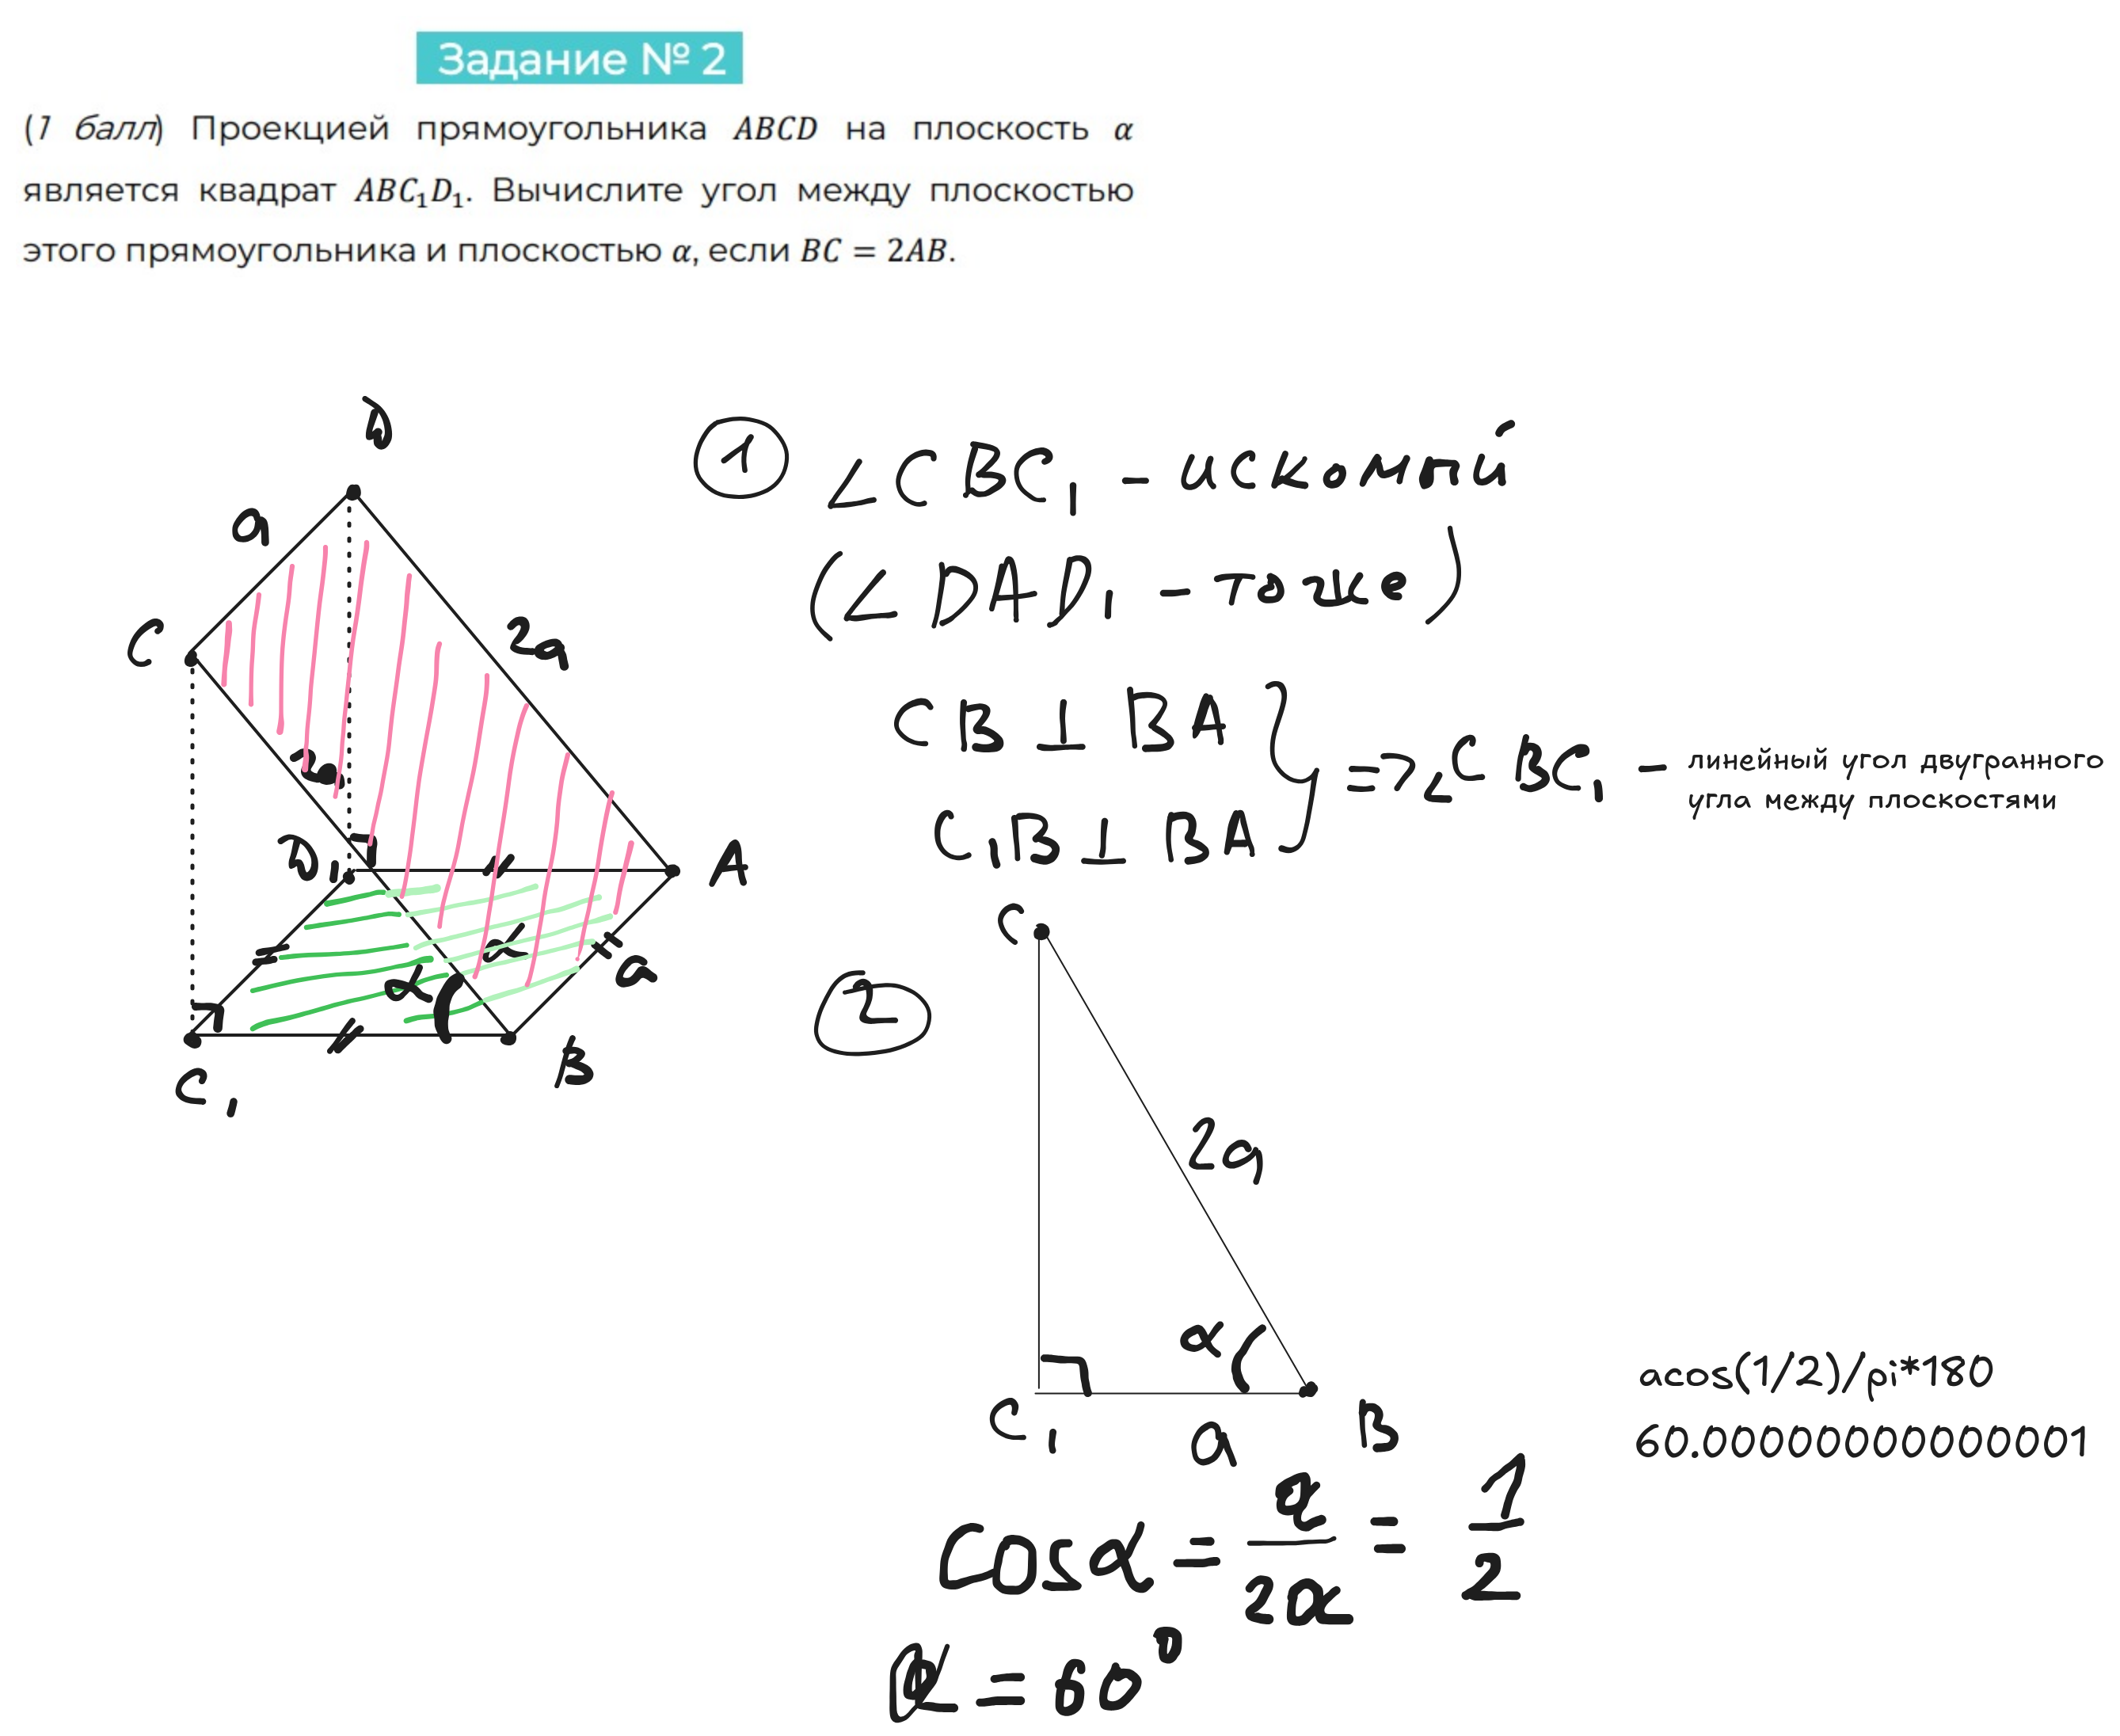 Задание № 2
(1 балл) Проекцией прямоугольника ABCD на плоскость α
является квадрат ABC₁D₁. Вычислите угол между плоскостью
этого прямоугольника и плоскостью α, если BC = 2AB.
D
a
C
2a
2a
D₁
A
α
α
a
C₁
B
1
∠CBC₁ - искомый
(∠DAD₁ - тоже)
CB ⊥ BA
C₁B ⊥ BA
=> ∠CBC₁ -
линейный угол двугранного
угла между плоскостями
2
C
2a
α
C₁
a
B
cosα = a/2a = 1/2
α = 60°
acos(1/2)/pi*180
60.00000000000001